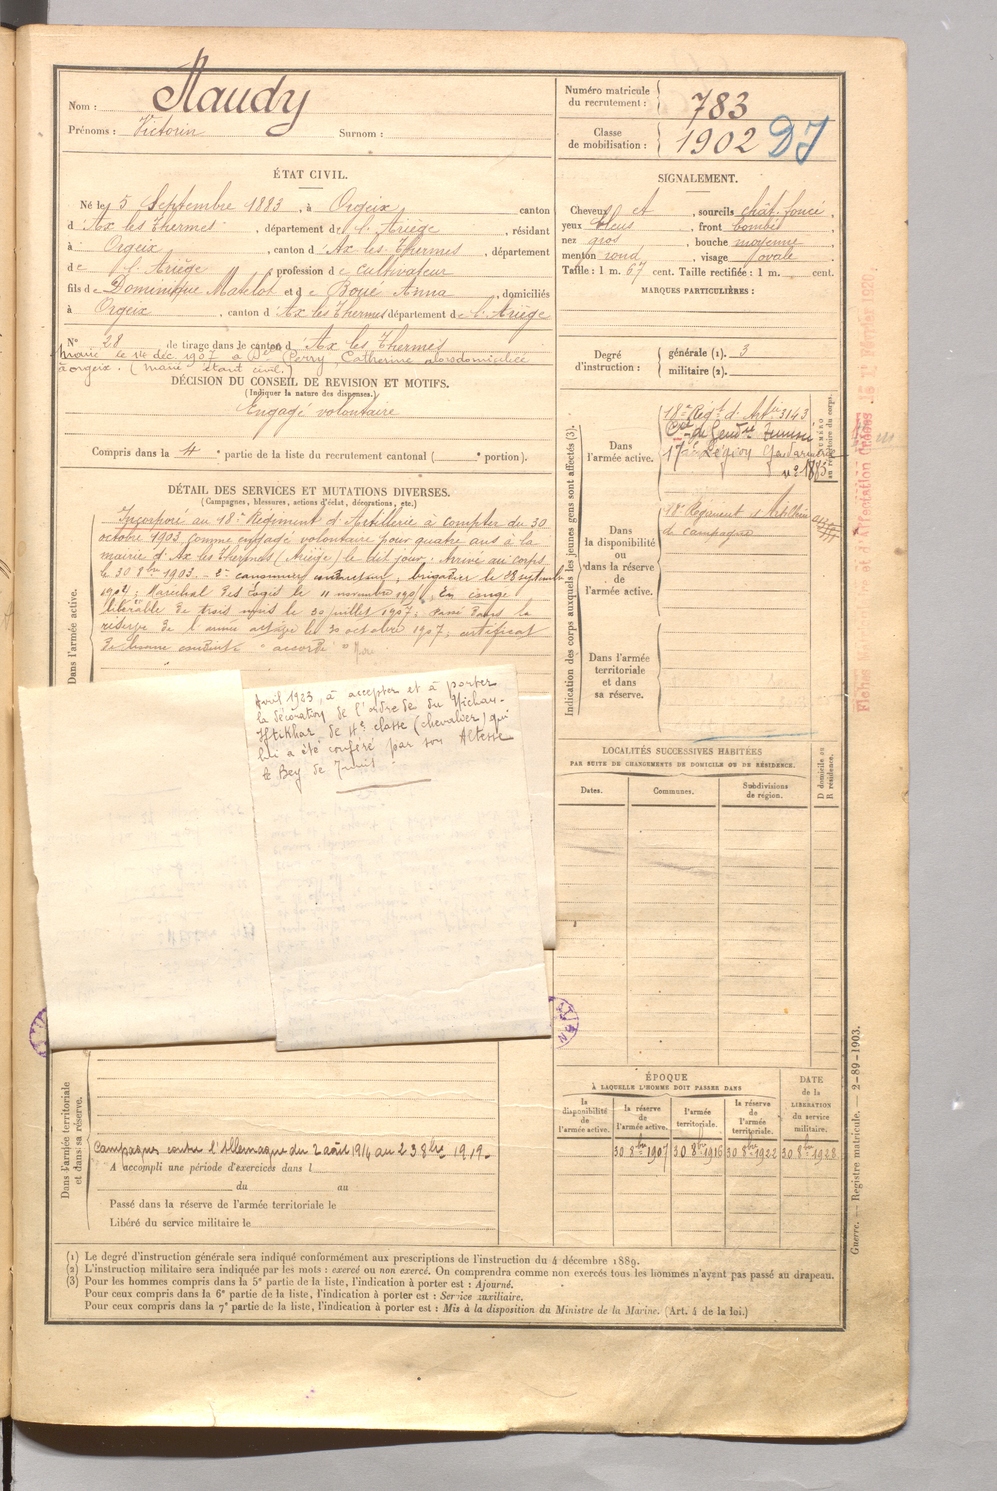 Nom : Naudy
Prénoms : Victorin Surnom :
Numéro matricule du recrutement : 783
Classe de mobilisation : 1902 DJ
ÉTAT CIVIL.
Né le 5 Septembre 1883, à Orgeix, canton
d'Ax les Thermes, département de l'Ariège, résidant
à Orgeix, canton d'Ax-les-Thermes, département
de l'Ariège, profession de cultivateur
fils de Dominique Matelot et de Boué Anna, domiciliés
à Orgeix, canton d'Ax les Thermes département de l'Ariège
N° 28 de tirage dans le canton d'Ax les Thermes
Marié le 14 déc. 1907 à Dlle Perry Catherine alors domiciliée
à orgeix. (marié étant civil.)
DÉCISION DU CONSEIL DE REVISION ET MOTIFS.
(Indiquer la nature des dispenses.)
Engagé volontaire
Compris dans la 4e partie de la liste du recrutement cantonal ( e portion).
SIGNALEMENT.
Cheveux et, sourcils chât. foncé,
yeux bleus, front bombé,
nez gros, bouche moyenne
menton rond, visage ovale.
Taille : 1 m. 67 cent. Taille rectifiée : 1 m. cent.
MARQUES PARTICULIÈRES :
Degré d'instruction : générale (1). 3
militaire (2).
DÉTAIL DES SERVICES ET MUTATIONS DIVERSES.
(Campagnes, blessures, actions d'éclat, décorations, etc.)
Dans l'armée active.
Incorporé au 18e Régiment d'Artillerie à compter du 30
octobre 1903 comme engagé volontaire pour quatre ans à la
mairie d'Ax les Thermes (Ariège) le dit jour. Arrivé au corps
le 30 8bre 1903. 2e canonnier conducteur, brigadier le 28 septembre
1904; Maréchal des Logis le 11 novembre 1905. En congé
libérable de trois mois le 20 juillet 1907; Passé dans la
réserve de l'armée active le 30 octobre 1907; certificat
de bonne conduite "accordé"
Avril 1923, à accepter et à porter
la décoration de l'ordre du Nichan-
Iftikhar de 4e classe (chevalier) qui
lui a été conféré par son Altesse
le Bey de Tunis.
Indication des corps auxquels les jeunes gens sont affectés (3).
Dans l'armée active.
NUMÉRO au répertoire du corps.
18e Régt d'Artie 3143
Cie de Gendrie Tunisie
17e Légion Gendarmerie
n° 1885
Dans la disponibilité ou dans la réserve de l'armée active.
18e Régiment d'Artillerie
de campagne
Dans l'armée territoriale et dans sa réserve.
LOCALITÉS SUCCESSIVES HABITÉES
PAR SUITE DE CHANGEMENTS DE DOMICILE OU DE RÉSIDENCE.
Dates. Communes. Subdivisions de région. D domicile ou R résidence.
ÉPOQUE
À LAQUELLE L'HOMME DOIT PASSER DANS
la disponibilité de l'armée active. la réserve de l'armée active. l'armée territoriale. la réserve de l'armée territoriale. DATE de la LIBÉRATION du service militaire.
30 8bre 1907 30 8bre 1916 30 8bre 1922 30 8bre 1928
Dans l'armée territoriale et dans sa réserve.
Campagnes contre l'Allemagne du 2 août 1914 au 23 8bre 1919.
A accompli une période d'exercices dans l
du au
Passé dans la réserve de l'armée territoriale le
Libéré du service militaire le
(1) Le degré d'instruction générale sera indiqué conformément aux prescriptions de l'instruction du 4 décembre 1889.
(2) L'instruction militaire sera indiquée par les mots : exercé ou non exercé. On comprendra comme non exercés tous les hommes n'ayant pas passé au drapeau.
(3) Pour les hommes compris dans la 5e partie de la liste, l'indication à porter est : Ajourné.
Pour ceux compris dans la 6e partie de la liste, l'indication à porter est : Service auxiliaire.
Pour ceux compris dans la 7e partie de la liste, l'indication à porter est : Mis à la disposition du Ministre de la Marine. (Art. 4 de la loi.)
Guerre. — Registre matricule. — 2-89-1903.
et d'Affectation le 1er Février 1920.